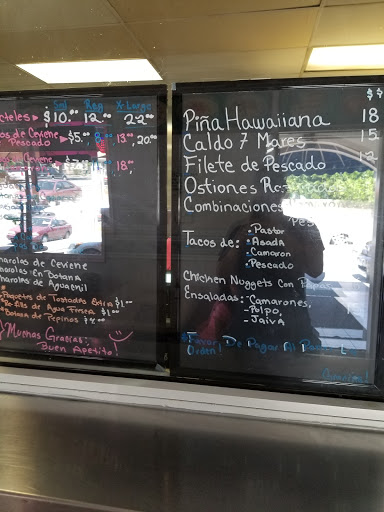 Sml Reg X-Large
cteles $10.00 12.00 22.00
os de Ceviche $5.00 13.00, 20.00
Pescado
Ceviche 18.00,
charolas de Ceviche
charolas En Botana
charolas de Aguachil
Paquete de Tostadas Extra $1.00
de Agua Fresca $1.00
Botana de Pepinos $4.00
¡Muchas Gracias!
Buen Apetito!
$$
Piña Hawaiiana 18
Caldo 7 Mares 15
Filete de Pescado 12
Ostiones
Combinaciones
Tacos de: •Pastor
•Asada
•Camaron
•Pescado
Chicken Nuggets Con Papas
Ensaladas: -Camarones,
-Pulpo,
-Jaiva
Favor De Pagar Al
Orden!
Gracias!